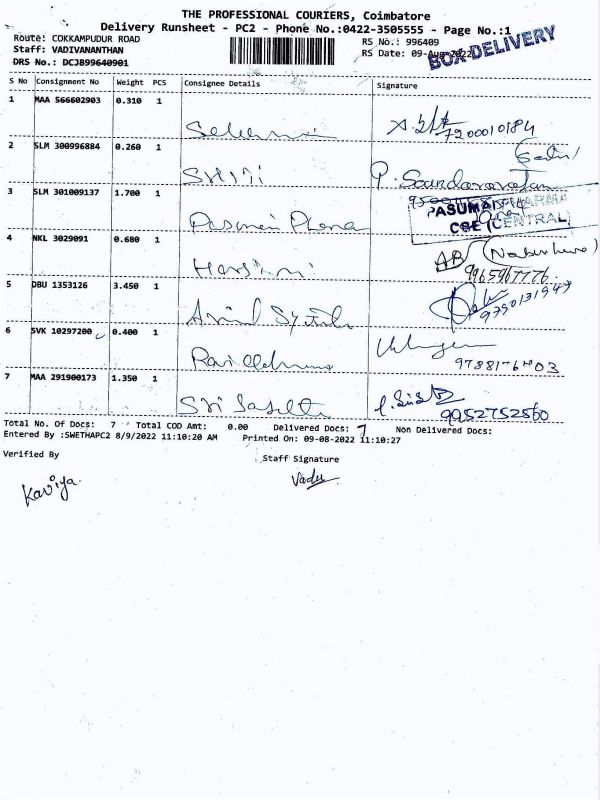 THE PROFESSIONAL COURIERS, Coimbatore
Delivery Runsheet - PC2 - Phone No.:0422-3505555 - Page No.:1
Route: COKKAMPUDUR ROAD
RS No.: 996409
BOX DELIVERY
Staff: VADIVANANTHAN
RS Date: 09-Aug-2022
DRS No.: DCJB99640901
S No Consignment No Weight PCS Consignee Details Signature
1 MAA 566602903 0.310 1
7200010184
2 SLM 300996884 0.260 1
P. Soundararajan
3 SLM 301009137 1.700 1
PASUMAI PHARMA
CBE (CENTRAL)
4 NKL 3029091 0.680 1
Harsini
AB
9965967776
5 DBU 1353126 3.450 1
9750131947
6 SVK 10297200 0.400 1
7 MAA 291900173 1.350 1
Sri
9952752560
Total No. Of Docs: 7 Total COD Amt: 0.00 Delivered Docs: 7 Non Delivered Docs:
Entered By :SWETHAPC2 8/9/2022 11:10:20 AM Printed On: 09-08-2022 11:10:27
Verified By Staff Signature
Kaviya